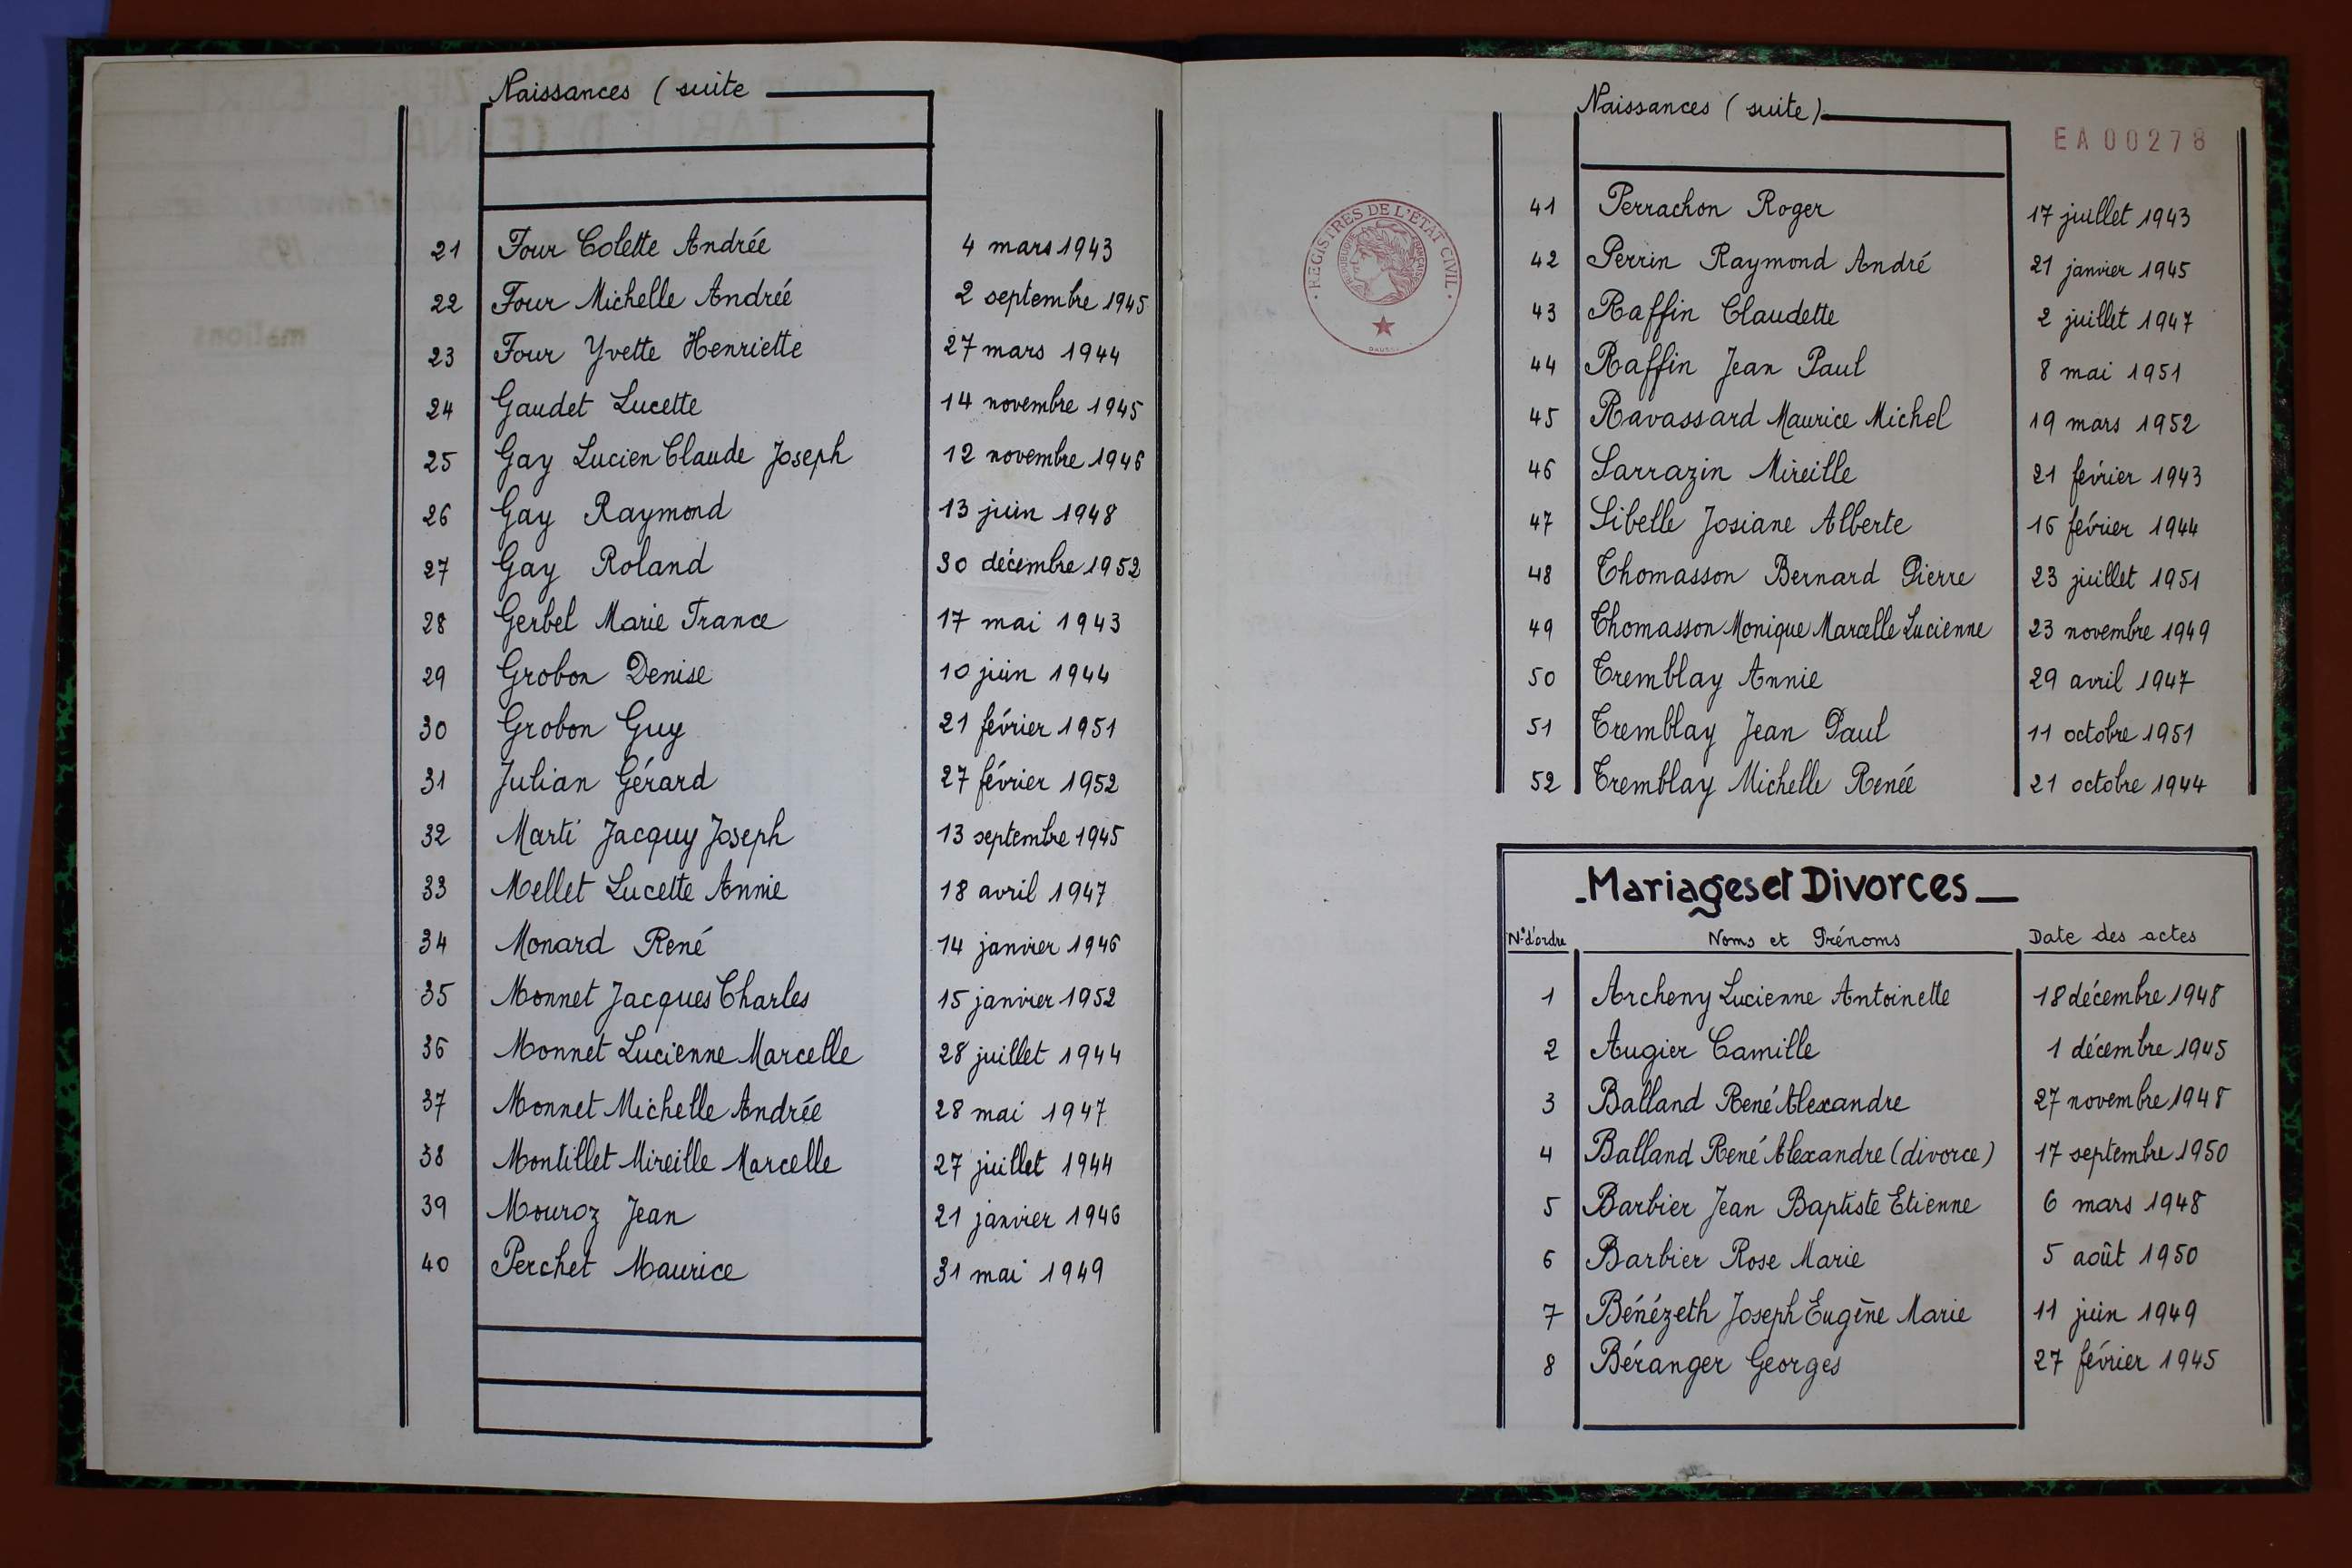 Naissances (suite
21 Four Colette Andrée 4 mars 1943
22 Four Michelle Andrée 2 septembre 1945
23 Four Yvette Henriette 27 mars 1944
24 Gaudet Lucette 14 novembre 1945
25 Gay Lucien Claude Joseph 12 novembre 1946
26 Gay Raymond 13 juin 1948
27 Gay Roland 30 décembre 1952
28 Gerbel Marie France 17 mai 1943
29 Grobon Denise 10 juin 1944
30 Grobon Guy 21 février 1951
31 Julian Gérard 27 février 1952
32 Marti Jacquy Joseph 13 septembre 1945
33 Mellet Lucette Annie 18 avril 1947
34 Monard René 14 janvier 1946
35 Monnet Jacques Charles 15 janvier 1952
36 Monnet Lucienne Marcelle 28 juillet 1944
37 Monnet Michelle Andrée 28 mai 1947
38 Montillet Mireille Marcelle 27 juillet 1944
39 Mouroz Jean 21 janvier 1946
40 Perchet Maurice 31 mai 1949
Naissances (suite)
EA00278
REGISTRES DE L'ETAT CIVIL
REPUBLIQUE FRANÇAISE
41 Perrachon Roger 17 juillet 1943
42 Perrin Raymond André 21 janvier 1945
43 Raffin Claudette 2 juillet 1947
44 Raffin Jean Paul 8 mai 1951
45 Ravassard Maurice Michel 19 mars 1952
46 Sarrazin Mireille 21 février 1943
47 Sibelle Josiane Alberte 16 février 1944
48 Thomasson Bernard Pierre 23 juillet 1951
49 Thomasson Monique Marcelle Lucienne 23 novembre 1949
50 Tremblay Annie 29 avril 1947
51 Tremblay Jean Paul 11 octobre 1951
52 Tremblay Michelle Renée 21 octobre 1944
Mariages et Divorces
N° d'ordre Noms et Prénoms Date des actes
1 Archeny Lucienne Antoinette 18 décembre 1948
2 Augier Camille 1 décembre 1945
3 Balland René Alexandre 27 novembre 1948
4 Balland René Alexandre (divorce) 17 septembre 1950
5 Barbier Jean Baptiste Etienne 6 mars 1948
6 Barbier Rose Marie 5 août 1950
7 Bénézeth Joseph Eugène Marie 11 juin 1949
8 Béranger Georges 27 février 1945